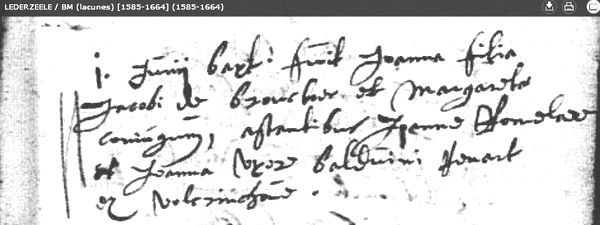 LEDERZEELE / BM (lacunes) [1585-1664] (1585-1664)
j. Junij bapt. fuit Joanna filia
Jacobi de et Margareta
coniugum, astantibus Joanne
et Joanna uxore Balduini
ex Volcrinchove.